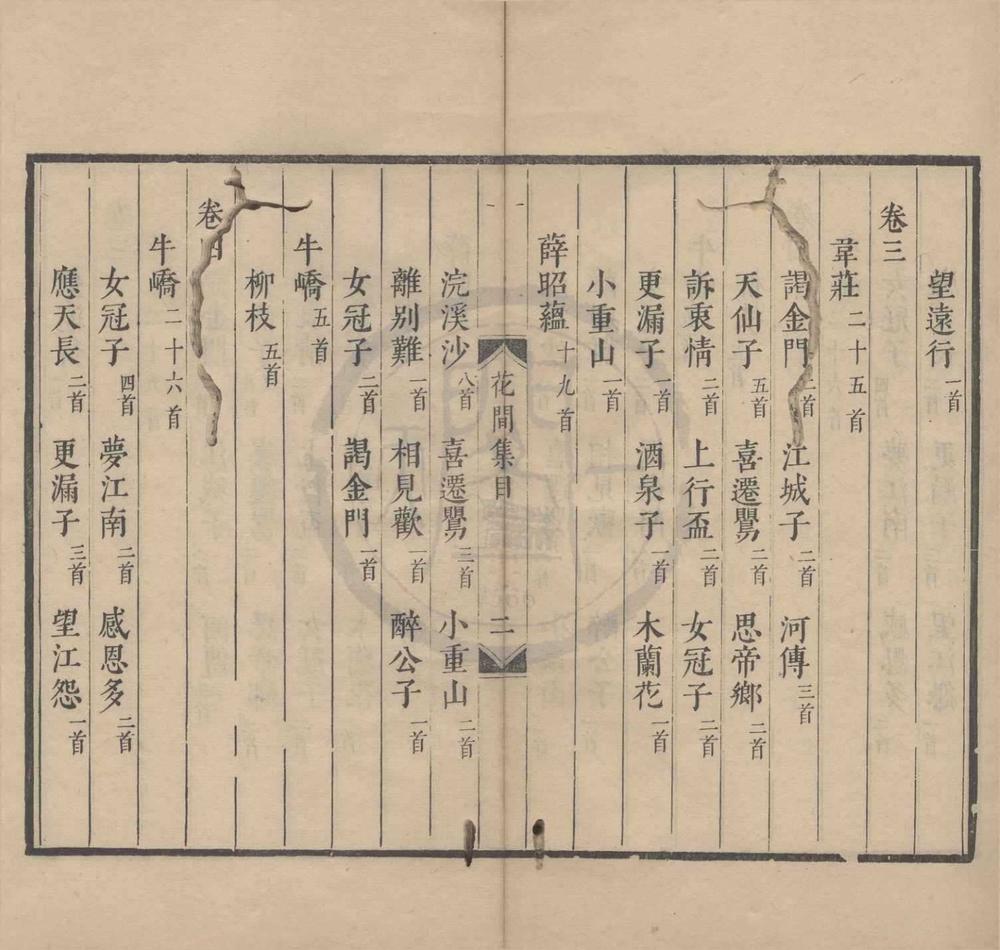 望遠行一首
卷三
韋莊二十五首
謁金門二首 江城子二首 河傳三首
天仙子五首 喜遷鸎二首 思帝鄉二首
訴衷情二首 上行盃二首 女冠子二首
更漏子一首 酒泉子一首 木蘭花一首
小重山一首
薛昭蘊十九首
花間集目 二
浣溪沙八首 喜遷鸎三首 小重山二首
離別難一首 相見歡一首 醉公子一首
女冠子二首 謁金門一首
牛嶠五首
柳枝五首
卷四
牛嶠二十六首
女冠子四首 夢江南二首 感恩多二首
應天長二首 更漏子三首 望江怨一首